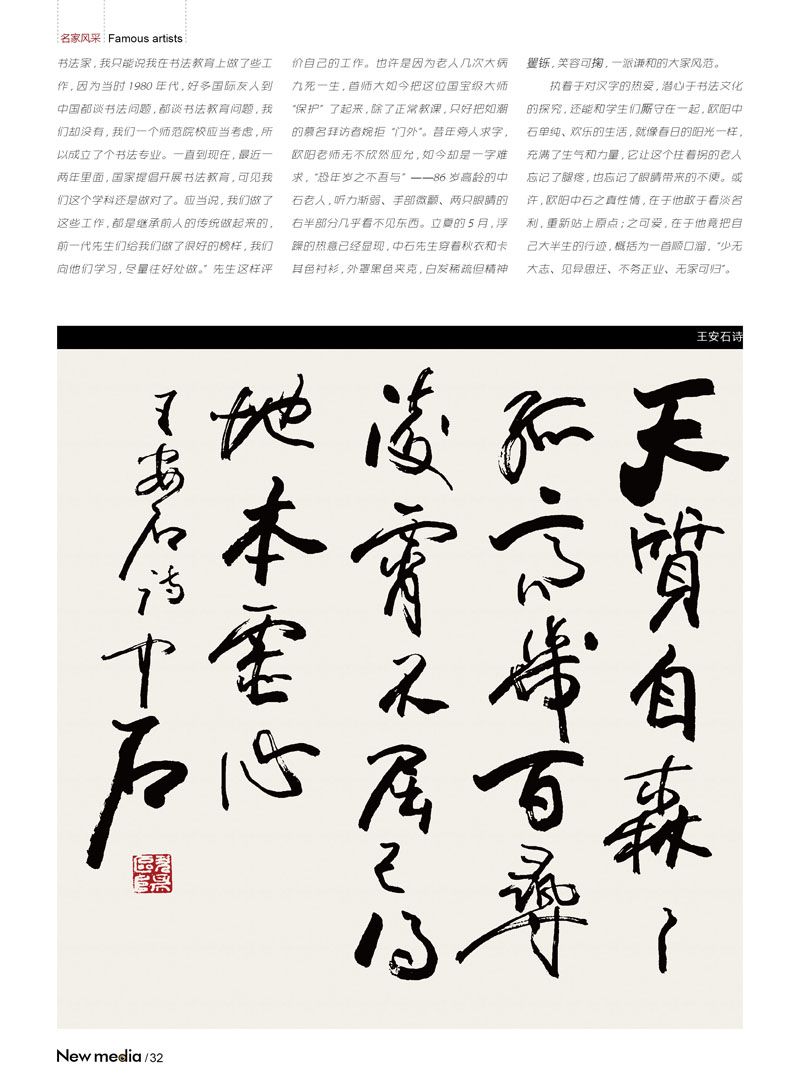 名家风采 Famous artists
书法家，我只能说我在书法教育上做了些工
作，因为当时 1980 年代，好多国际友人到
中国都谈书法问题，都谈书法教育问题，我
们却没有，我们一个师范院校应当考虑，所
以成立了个书法专业。一直到现在，最近一
两年里面，国家提倡开展书法教育，可见我
们这个学科还是做对了。应当说，我们做了
这些工作，都是继承前人的传统做起来的，
前一代先生们给我们做了很好的榜样，我们
向他们学习，尽量往好处做。”先生这样评
价自己的工作。也许是因为老人几次大病
九死一生，首师大如今把这位国宝级大师
“保护”了起来，除了正常教课，只好把如潮
的慕名拜访者婉拒“门外”。昔年旁人求字，
欧阳老师无不欣然应允，如今却是一字难
求，“恐年岁之不吾与”——86 岁高龄的中
石老人，听力渐弱、手部微颤、两只眼睛的
右半部分几乎看不见东西。立夏的 5 月，浮
躁的热意已经显现，中石先生穿着秋衣和卡
其色衬衫，外罩黑色夹克，白发稀疏但精神
矍铄，笑容可掬，一派谦和的大家风范。
执着于对汉字的热爱，潜心于书法文化
的探究，还能和学生们厮守在一起，欧阳中
石单纯、欢乐的生活，就像春日的阳光一样，
充满了生气和力量，它让这个拄着拐的老人
忘记了腿疼，也忘记了眼睛带来的不便。或
许，欧阳中石之真性情，在于他敢于看淡名
利，重新站上原点；之可爱，在于他竟把自
己大半生的行迹，概括为一首顺口溜，“少无
大志、见异思迁、不务正业、无家可归”。
王安石诗
天質自森々
孤高幾百尋
凌霄不屈己得
地本靈心
王安石诗中石
New media / 32